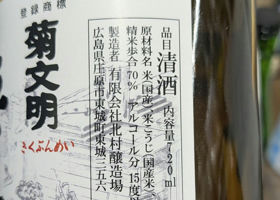 品目 清酒 内容量720ml
原材料名 米(国産)、米こうじ(国産米)、
精米歩合70% アルコール分 15度以
製造者 有限会社北村醸造場
広島県庄原市東城町東城二五六
登録商標
菊文明
きくぶんめい